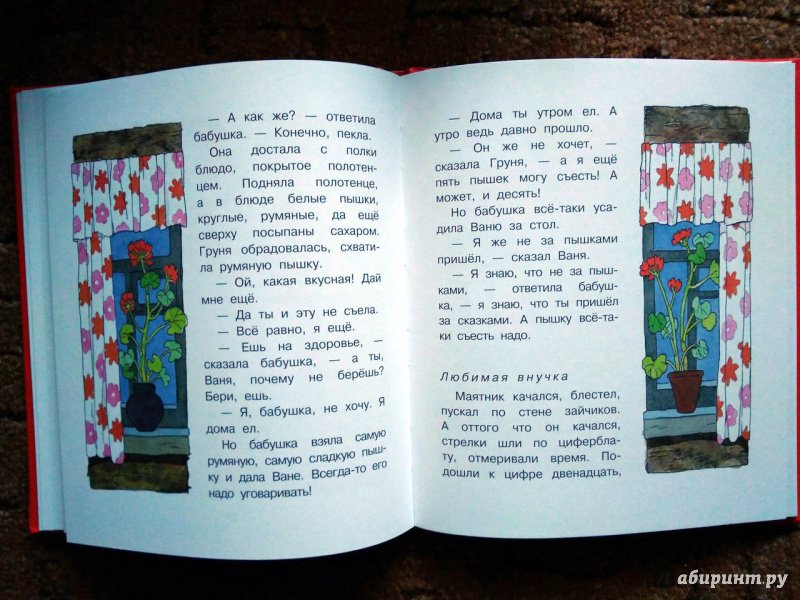 — А как же? — ответила
бабушка. — Конечно, пекла.
Она достала с полки
блюдо, покрытое полотен-
цем. Подняла полотенце,
а в блюде белые пышки,
круглые, румяные, да ещё
сверху посыпаны сахаром.
Груня обрадовалась, схвати-
ла румяную пышку.
— Ой, какая вкусная! Дай
мне ещё.
— Да ты и эту не съела.
— Всё равно, я ещё.
— Ешь на здоровье, —
сказала бабушка, — а ты,
Ваня, почему не берёшь?
Бери, ешь.
— Я, бабушка, не хочу. Я
дома ел.
Но бабушка взяла самую
румяную, самую сладкую пыш-
ку и дала Ване. Всегда-то его
надо уговаривать!
— Дома ты утром ел. А
утро ведь давно прошло.
— Он же не хочет, —
сказала Груня, — а я ещё
пять пышек могу съесть! А
может, и десять!
Но бабушка всё-таки уса-
дила Ваню за стол.
— Я же не за пышками
пришёл, — сказал Ваня.
— Я знаю, что не за пыш-
ками, — ответила бабуш-
ка, — я знаю, что ты пришёл
за сказками. А пышку всё-та-
ки съесть надо.
Любимая внучка
Маятник качался, блестел,
пускал по стене зайчиков.
А оттого что он качался,
стрелки шли по циферблa-
ту, отмеривали время. По-
дошли к цифре двенадцать,
Лабиринт.ру